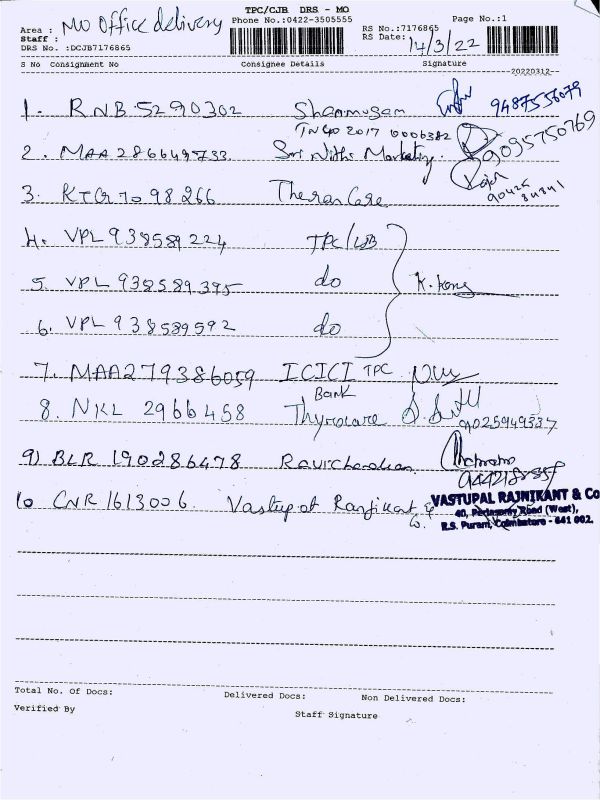 TPC/CJB DRS - MO
Area : MO Office delivery
Phone No.:0422-3505555
Page No.:1
Staff :
RS No.:7176865
RS Date: 14/3/22
DRS No. :DCJB7176865
S No Consignment No Consignee Details Signature
20220312
1. RNB 5290302 Shanmugam 9487556079
TN 2017 0006382
2. MAA 286649733 Sri Nithi Marketing 9095750769
3. KTG 7098266 Theran Care 90425 84841
4. VPL 938589224 TPC/
5. VPL 938589395 do
6. VPL 938589592 do
7. MAA279386059 ICICI TPC
Bank
8. NKL 2966458 Thyrocare 9025949337
9) BLR 190286478 Ravichandran
10 CNR 1613006 Vastupal Ranjikant &
Co.
VASTUPAL RAJNIKANT & Co
40, Periasamy Road (West),
R.S. Puram, Coimbatore - 641 002.
Total No. of Docs: Delivered Docs: Non Delivered Docs:
Verified By Staff Signature